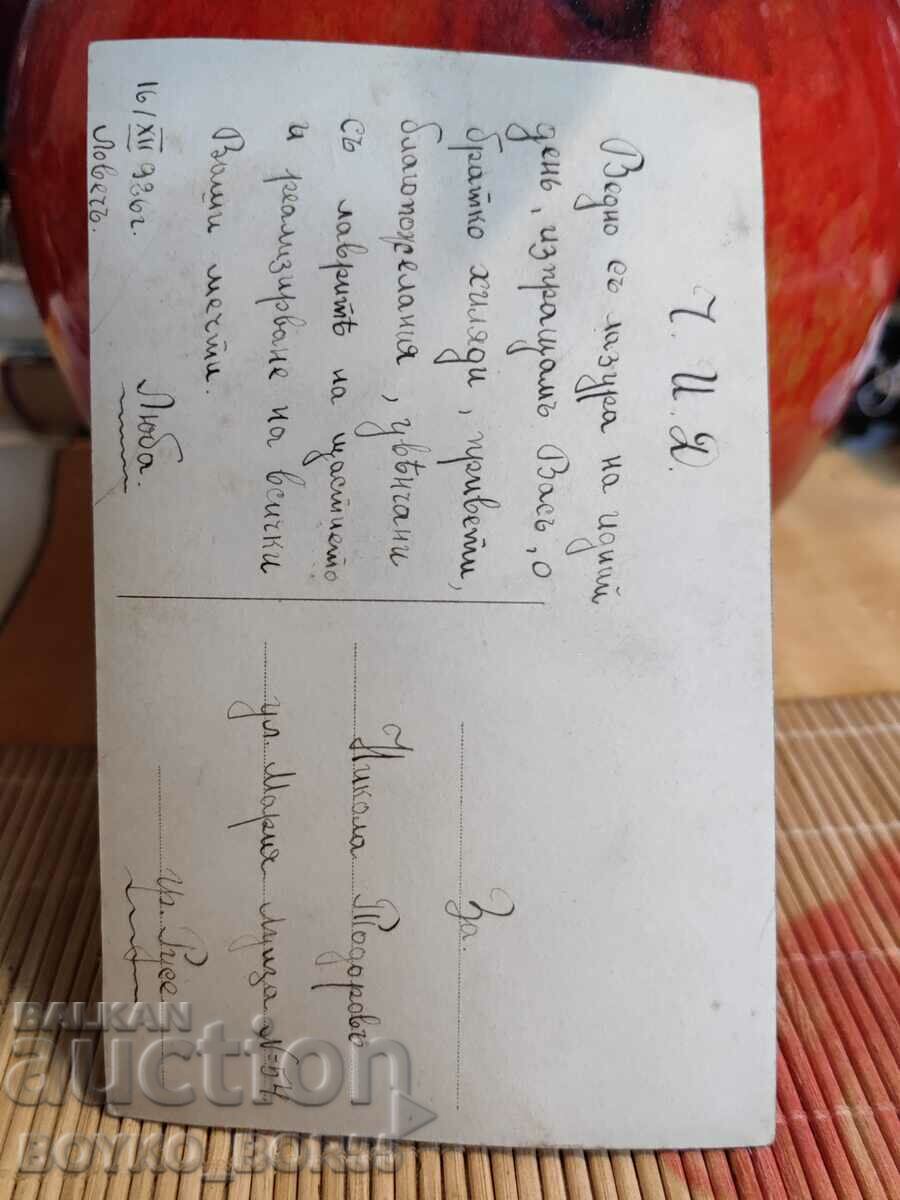 Ч. И. Д.
Ведно съ лазура на идния
день, изпращамъ Васъ, о
братко хиляди, привети,
благопожелания, увѣнчани
съ лавритѣ на щастието
и реализирване на всички
Ваши мечти.
16/XII 936г.
Ловечъ.
Люба.
За.
Никола Тодоровъ
ул. Мария Луиза №
гр. Русе
BALKAN
auction
BOYKO_BORIS